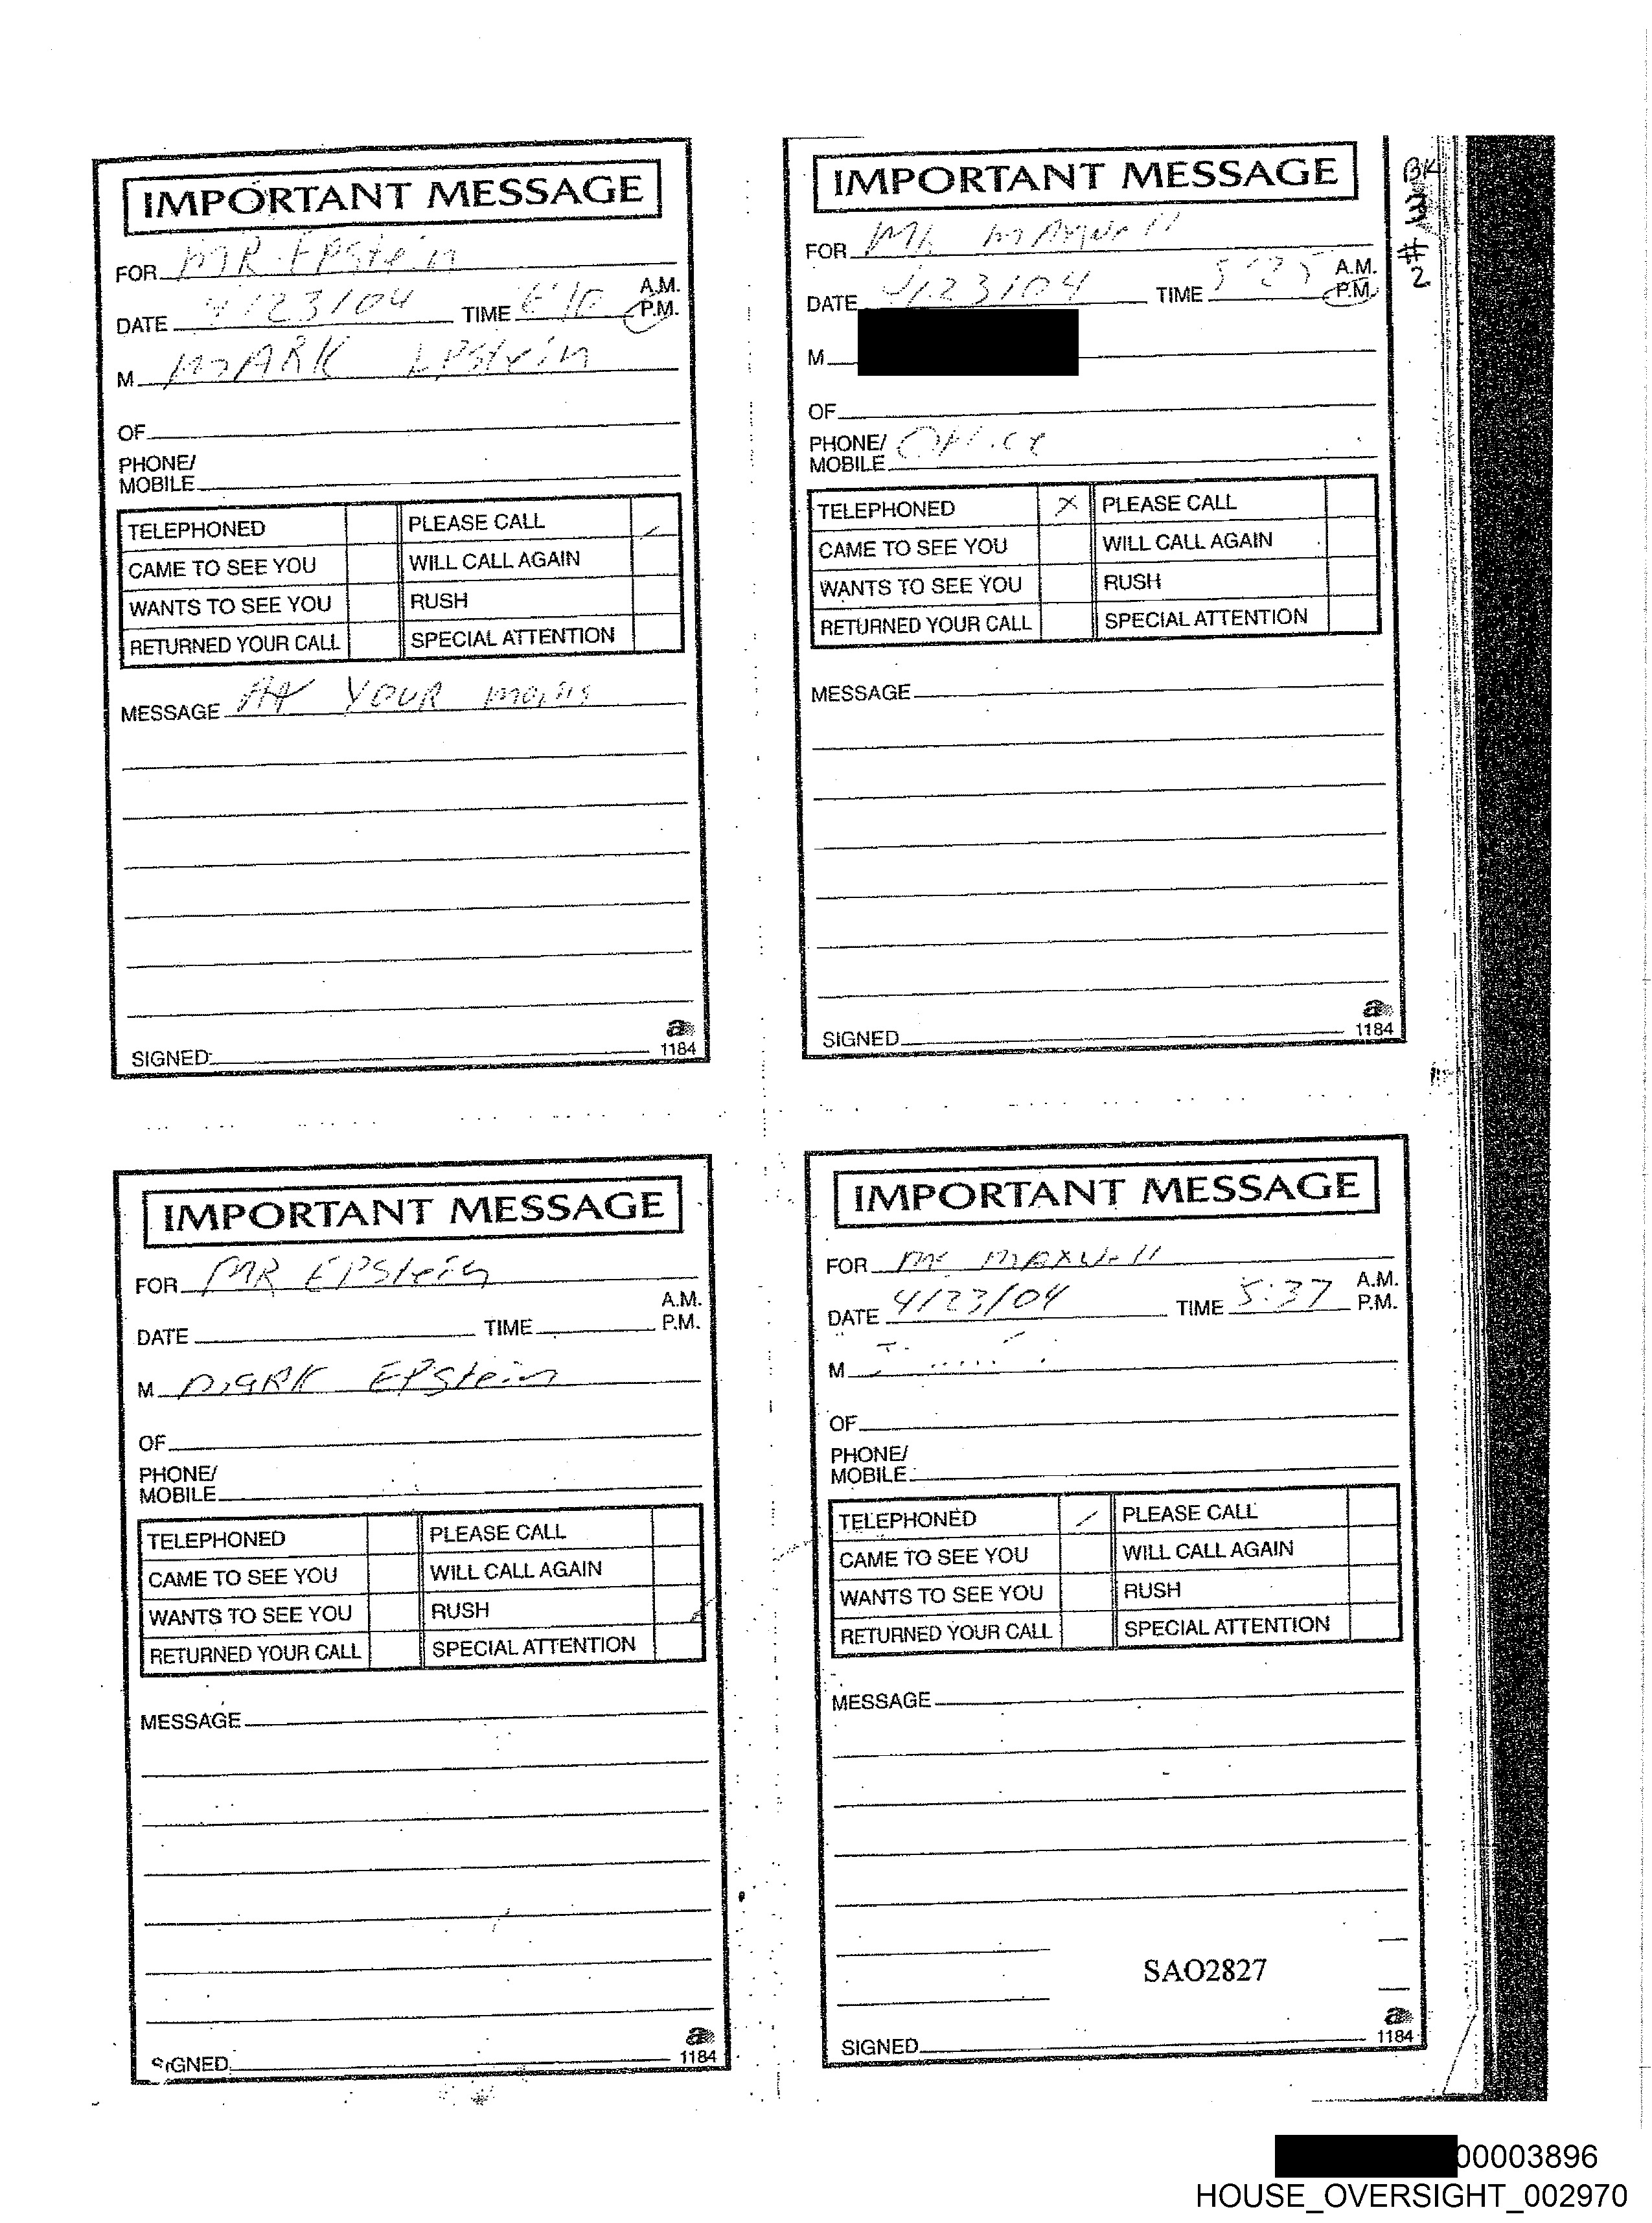 IMPORTANT MESSAGE
FOR MR. EPstein
DATE 4/23/04 TIME A.M.
P.M.
M MARK EPstein
OF
PHONE/
MOBILE
TELEPHONED PLEASE CALL
CAME TO SEE YOU WILL CALL AGAIN
WANTS TO SEE YOU RUSH
RETURNED YOUR CALL SPECIAL ATTENTION
MESSAGE At YOUR moms
SIGNED
a
1184
IMPORTANT MESSAGE
FOR
DATE 4/23/04 TIME 5:25 A.M.
P.M.
M
OF
PHONE/ Office
MOBILE
TELEPHONED X PLEASE CALL
CAME TO SEE YOU WILL CALL AGAIN
WANTS TO SEE YOU RUSH
RETURNED YOUR CALL SPECIAL ATTENTION
MESSAGE
SIGNED
a
1184
BK
#
2
IMPORTANT MESSAGE
FOR MR EPstein
DATE TIME A.M.
P.M.
M MARK EPstein
OF
PHONE/
MOBILE
TELEPHONED PLEASE CALL
CAME TO SEE YOU WILL CALL AGAIN
WANTS TO SEE YOU RUSH
RETURNED YOUR CALL SPECIAL ATTENTION
MESSAGE
SIGNED
a
1184
IMPORTANT MESSAGE
FOR MAXWell
DATE 4/23/04 TIME 5:37 A.M.
P.M.
M
OF
PHONE/
MOBILE
TELEPHONED PLEASE CALL
CAME TO SEE YOU WILL CALL AGAIN
WANTS TO SEE YOU RUSH
RETURNED YOUR CALL SPECIAL ATTENTION
MESSAGE
SAO2827
SIGNED
a
1184
00003896
HOUSE_OVERSIGHT_002970